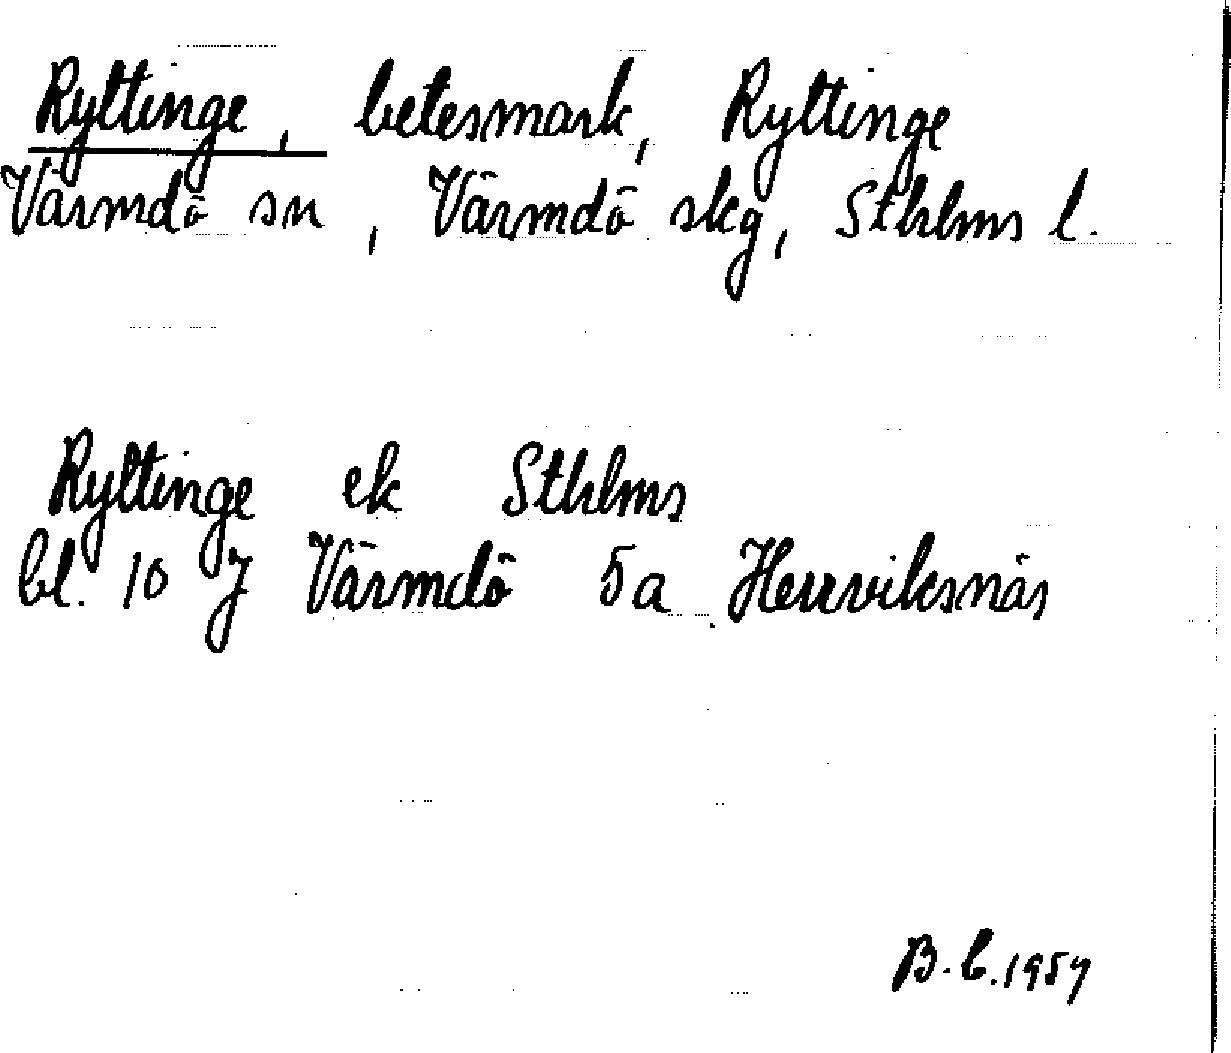 Ryltinge, betesmark, Ryltinge
Värmdö sn, Värmdö skg, Sthlms l.
Ryltinge ek Sthlms
bl. 10 J Värmdö 5a Herrviksnäs
B.C. 1957